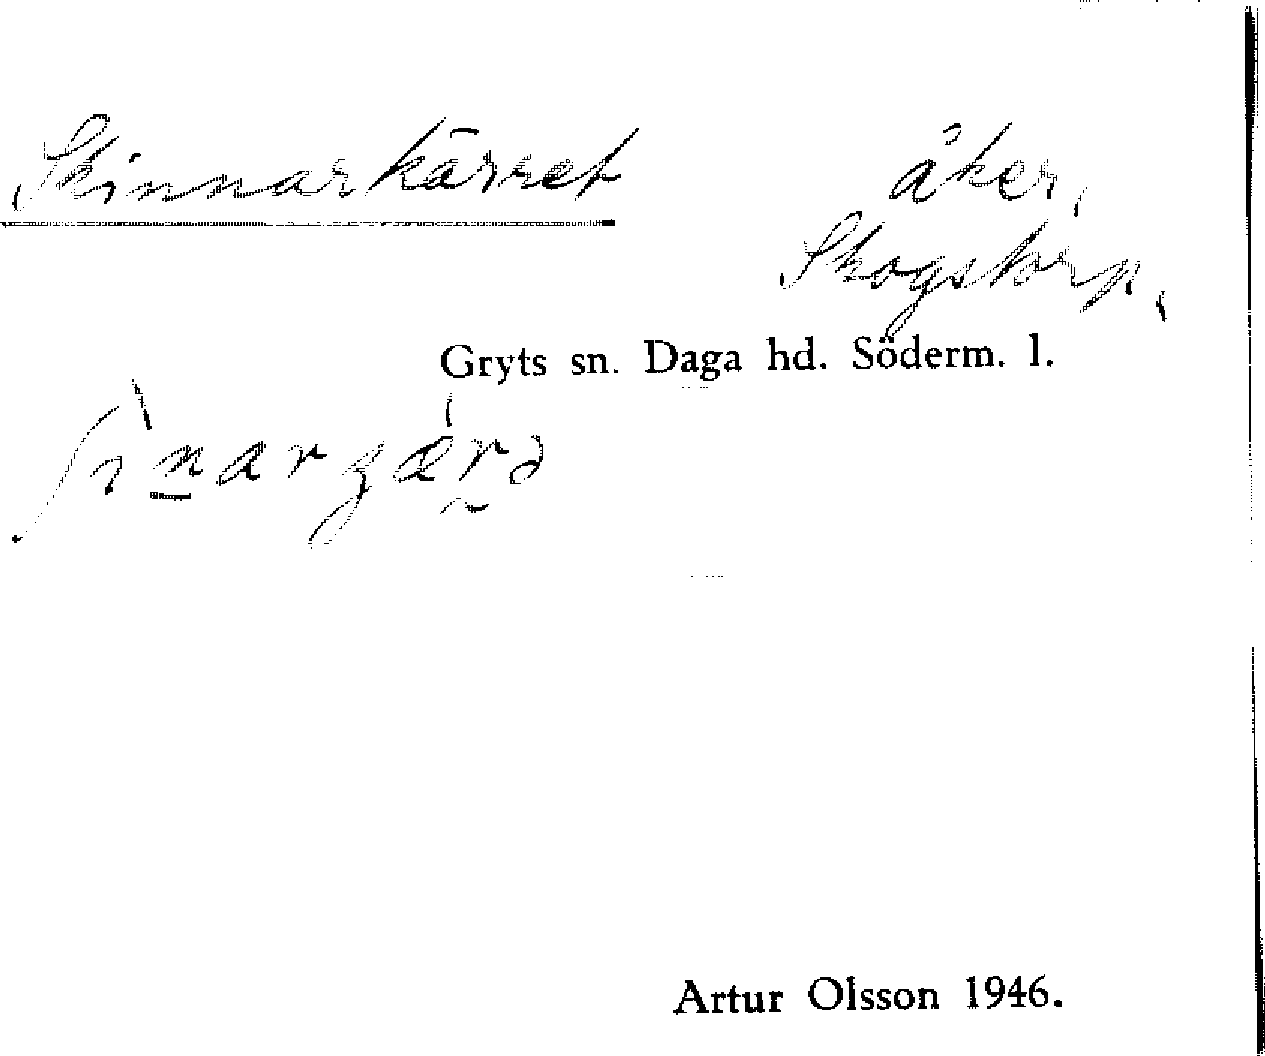 Skinnarkärret åker,
Skogstorp,
Gryts sn. Daga hd. Söderm. l.
Artur Olsson 1946.